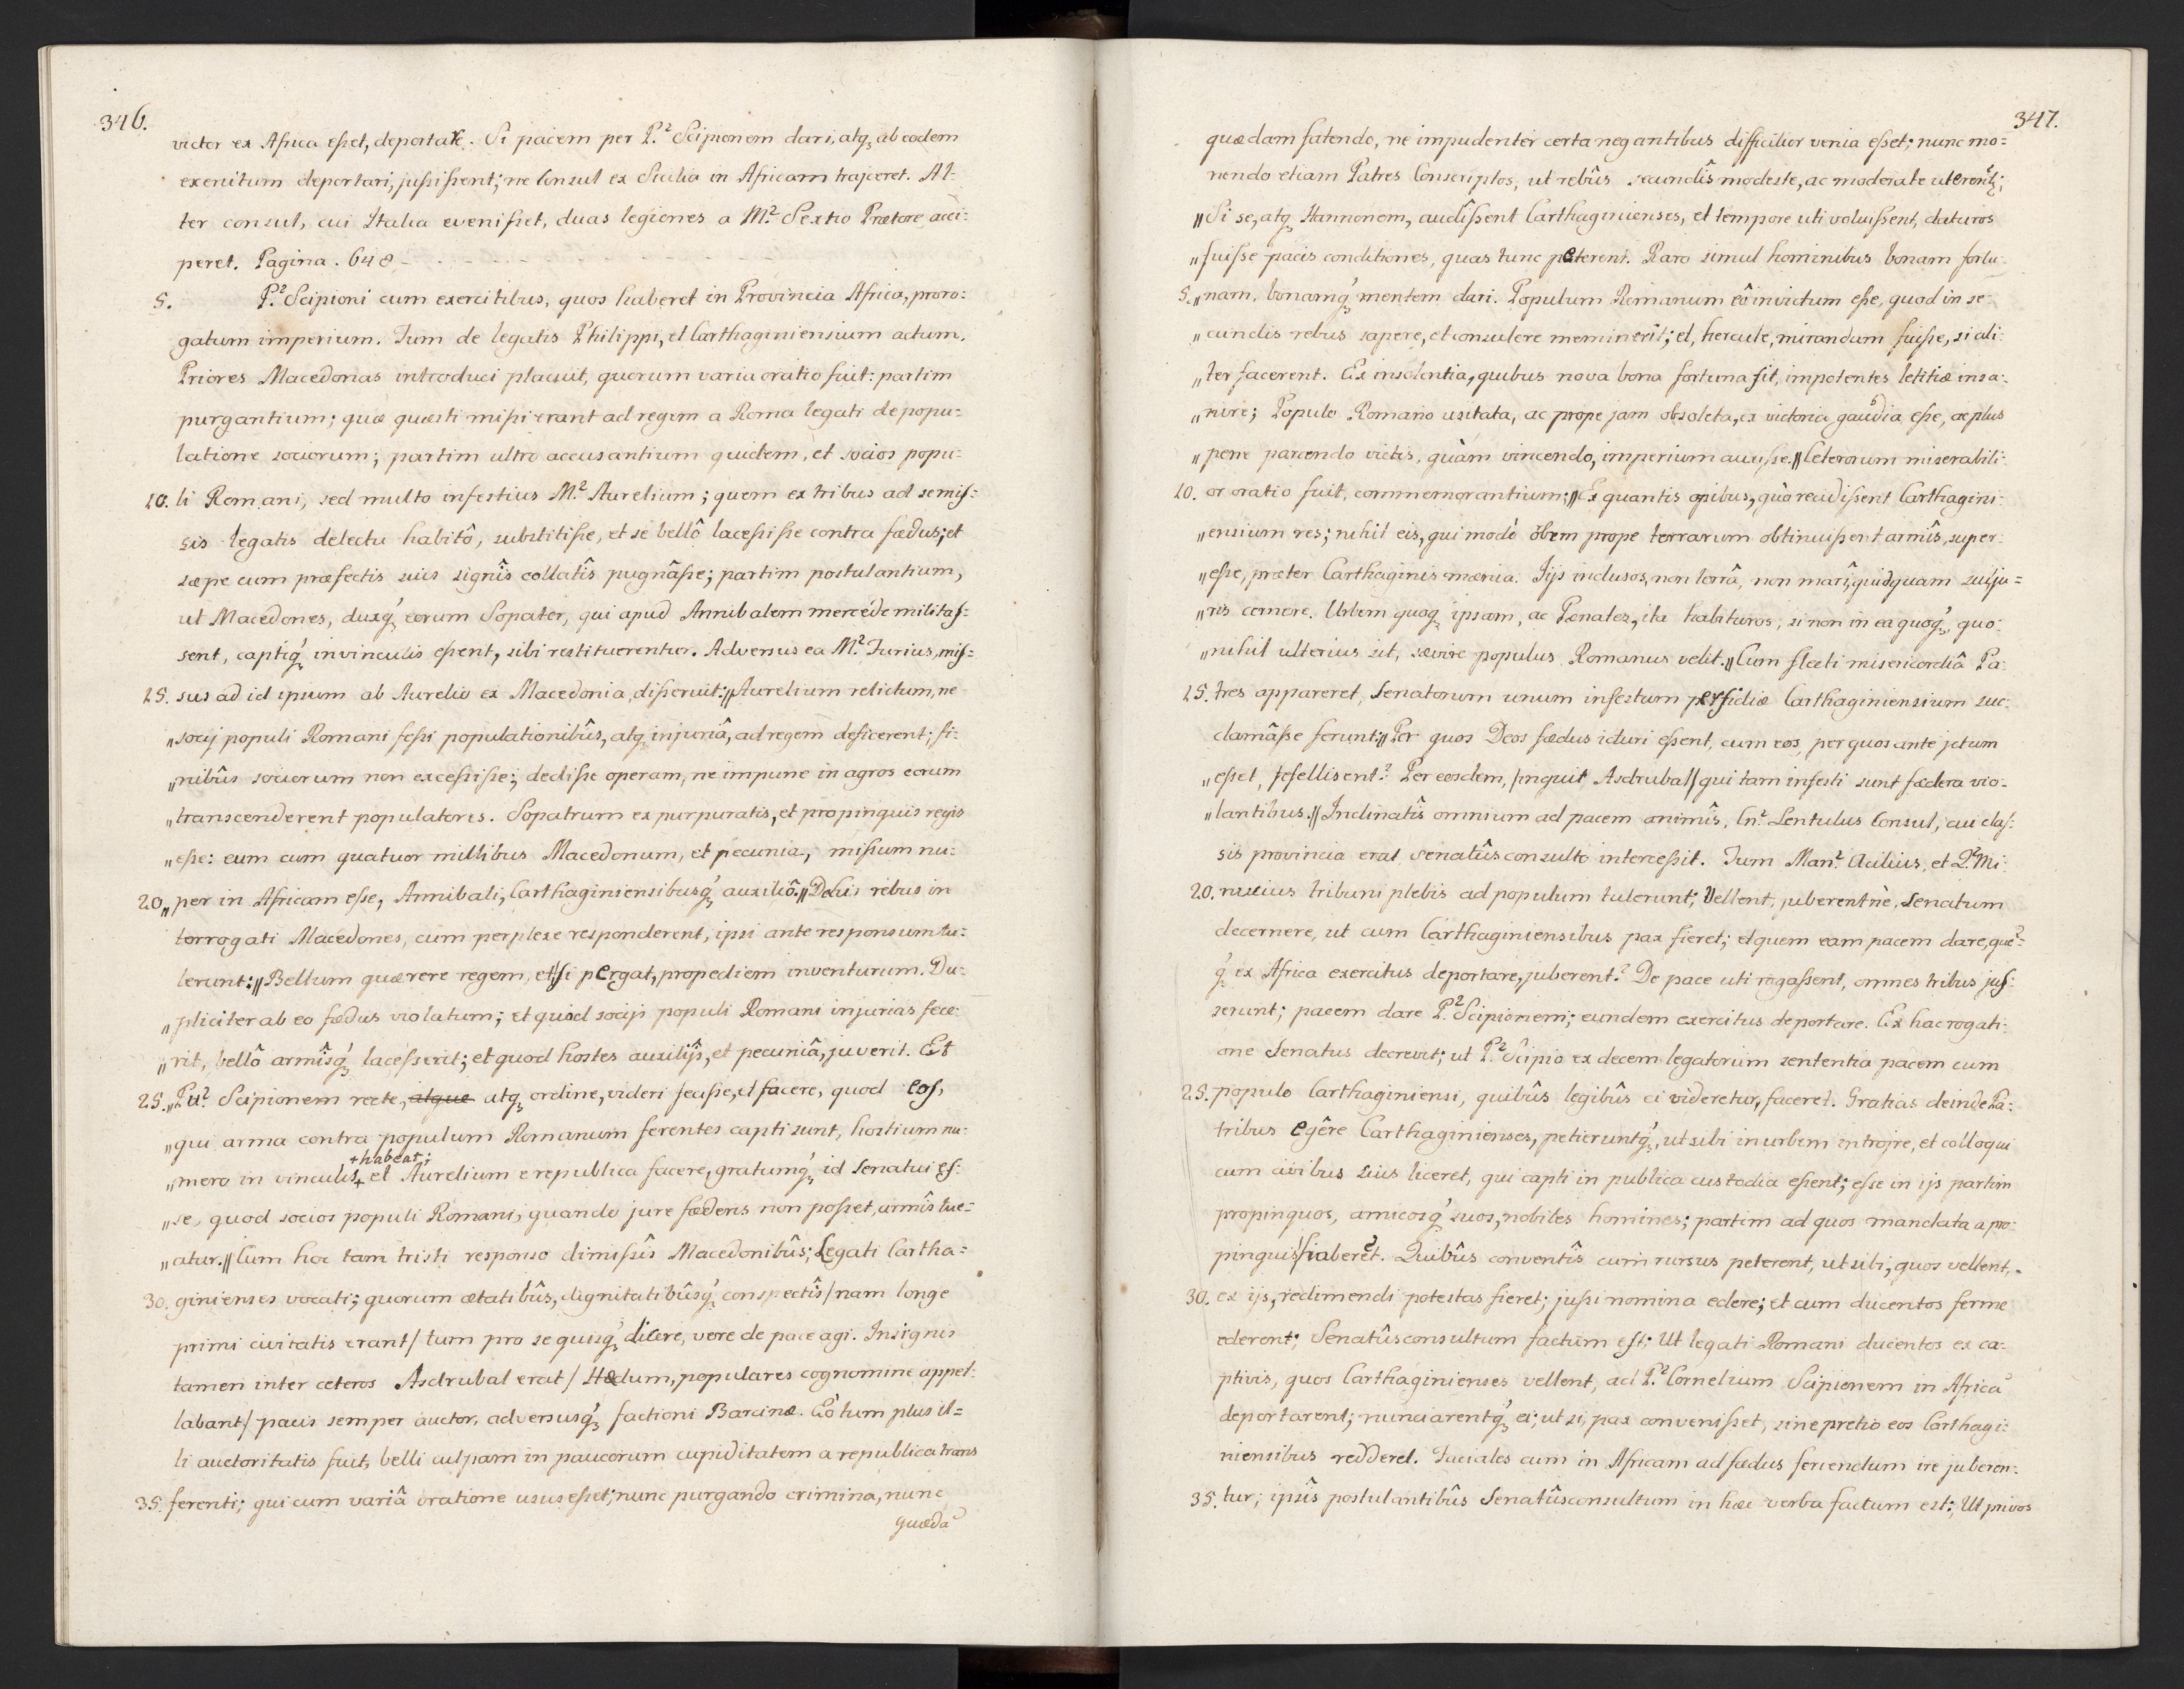 346.
victor ex Africa eſset, deportare. Si pacem per P.² Scipionem dari, atq; ab eodem
exercitum deportari, juſsiſsent; ne Consul ex Sicilia in Africam trajceret. Al-
ter consul, cui Italia eveniſset, duas legiones a M.² Sextio Prætore acci-
peret. Pagina. 648
5. P.² Scipioni cum exercitibus, quos haberet in Provincia Africa, proro-
gatum imperium. Tum de legatis Philippi, et Carthaginiensium actum.
Priores Macedonas introduci placuit, quorum varia oratio fuit: partim
purgantium; quæ quæsti miſsi erant ad regem a Roma legati de popu-
latione sociorum; partim ultro accusantium quidem, et socios popu-
10. li Romani, sed multo infestius M.² Aurelium; quem ex tribus ad se miſ-
sis legatis delectu habitô, substitiſse, et se bellô laceſsiſse contra fœdus; et
sæpe cum præfectis suis signîs collatîs pugnâſse; partim postulantium,
ut Macedones, duxq́; eorum Sopater, qui apud Annibalem mercede militaſ-
sent, captiq́; in vinculis eſsent, sibi restituerentur. Adversus ea M.² Furius, miſ-
15. sus ad id ipsum ab Aurelio ex Macedonia, diſseruit: „Aurelium relictum, ne
„socij populi Romani feſsi populationibûs, atq; injuriâ, ad regem deficerent; fi-
„nibûs sociorum non exceſsiſse; dediſse operam, ne impune in agros eorum
„transcenderent populatores. Sopatrum ex purpuratis, et propinquis regis
„eſse: eum cum quatuor millibus Macedonum, et pecunia, miſsum nu-
20. „per in Africam eſse, Annibali, Carthaginiensibusq́; auxiliô.„ De his rebus in
terrogati Macedones, cum perplexe responderent, ipsi ante responsum tu-
lerunt: „Bellum quærere regem, et, si pergat, propediem inventurum. Du-
„pliciter ab eo fœdus violatum; et quod socijs populi Romani injurias fece-
„rit, bellô armîsq́; laceſserit; et quod hostes auxilijs, et pecuniâ, juverit. Et
25. „Pu.² Scipionem recte, atque atq; ordine, videri feciſse, et facere, quod eos,
„qui arma contra populum Romanum ferentes capti sunt, hostium nu-
+habeat;
„mero in vinculis + et Aurelium e republica facere, gratumq́; id Senatui eſ-
„se, quod socios populi Romani, quando jure fœderis non poſset, armîs tue-
„atur.„ Cum hoc tam tristi responso dimiſsîs Macedonibûs; Legati Cartha-
30. ginienses vocati; quorum ætatibûs, dignitatibûsq́; conspectîs / nam longe
primi civitatis erant / tum pro se quisq́; dicere, vere de pace agi. Insignis
tamen inter ceteros Asdrubal erat / Hædum, populares cognomine appel-
labant / pacis semper auctor, adversusq́; factioni Barcinæ. Eô tum plus il-
li auctoritatis fuit, belli culpam in paucorum cupiditatem a republica trans
35. ferenti; qui cum variâ oratione usus eſset; nunc purgando crimina, nunc
quæda᷃
347.
quædam fatendo, ne impudenter certa negantibus difficilior venia eſset; nunc mo-
nendo etiam Patres Conscriptos, ut rebûs secundîs modeste, ac moderate uterent²;
„Si se, atq; Hannonem, audîſsent Carthaginienses, et tempore uti voluiſsent, daturos
„fuiſse pacis conditiones, quas tunc peterent. Raro simul hominibus bonam fortu-
5. „nam, bonamq́; mentem dari. Populum Romanum eô invictum eſse, quod in se-
„cundis rebus sapere, et consulere meminerit; et, hercule, mirandum fuiſse, si ali-
„ter facerent. Ex insolentia, quibus nova bona fortuna sit, impotentes letitiæ insa-
„nire; Populo Romano usitata, ac prope jam obsoleta, ex victoria gaudia eſse, ac plus
„pene parcendo victis, quàm vincendo, imperium auxiſse.„ Ceterorum miserabili-
10. or oratio fuit, commemorantium: „Ex quantis opibus, quò recidiſsent Carthagini-
„ensium res; nihil eis, qui modò orbem prope terrarum obtinuiſsent armîs, super-
„eſse, præter Carthaginis mœnia. Iijs inclusos, non terrâ, non marî, quidquam sui ju-
„ris cernere. Urbem quoq; ipsam, ac Penates, ita habituros, si non in ea quoq́;, quo-
„nihil ulterius sit, sævire populus Romanus velit.„ Cum flecti misericordiâ Pa-
15. tres appareret, Senatorum unum infestum perfidiæ Carthaginiensium suc-
clamâſse ferunt: „Per quos Deos fœdus icturi eſsent, cum eos, per quos ante jctum
„eſset, fefelliſsent? Per eosdem, / inquit Asdrubal / qui tam infesti sunt fœdera vio-
„lantibus.„ Inclinatîs omnium ad pacem animîs, Cn.² Lentulus Consul, cui claſ-
sis provincia erat, senatûsconsulto interceſsit. Tum Man.² Acilius, et Q.² Mi-
20. nucius tribuni plebis ad populum tulerunt; Vellent, juberentnè, Senatum
decernere, ut cum Carthaginiensibus pax fieret; et quem eam pacem dare, que᷃-
q́; ex Africa exercitus deportare, juberent? De pace uti rogaſsent, omnes tribus juſ-
serunt; pacem dare P.² Scipionem; eundem exercitus deportare. Ex hac rogati-
one Senatus decrevit; ut P.² Scipio ex decem legatorum sententia pacem cum
25. populo Carthaginiensi, quibûs legibûs ei videretur, faceret. Gratias deinde Pa-
tribus egêre Carthaginienses, petieruntq́;, ut sibi in urbem introjre, et colloqui
cum civibus suis liceret, qui capti in publica custodia eſsent; eſse in ijs partim
propinquos, amicosq́; suos, nobiles homines; partim ad quos mandata a pro-
pinquis haberet. Quibûs conventîs cum rursus peterent, ut sibi, quos vellent,
30. ex ijs, redimendi potestas fieret; juſsi nomina edere; et cum ducentos ferme
ederent; Senatûsconsultum factum est; Ut legati Romani ducentos ex ca-
ptivis, quos Carthaginienses vellent, ad P.² Cornelium Scipionem in Africa᷃
deportarent; nunciarentq́; ei; ut si, pax conveniſset, sine pretio eos Carthagi-
niensibus redderet. Faciales cum in Africam ad fœdus feriendum ire juberen-
35. tur; ipsîs postulantibûs Senatûsconsultum in hæc verba factum est; Ut privos